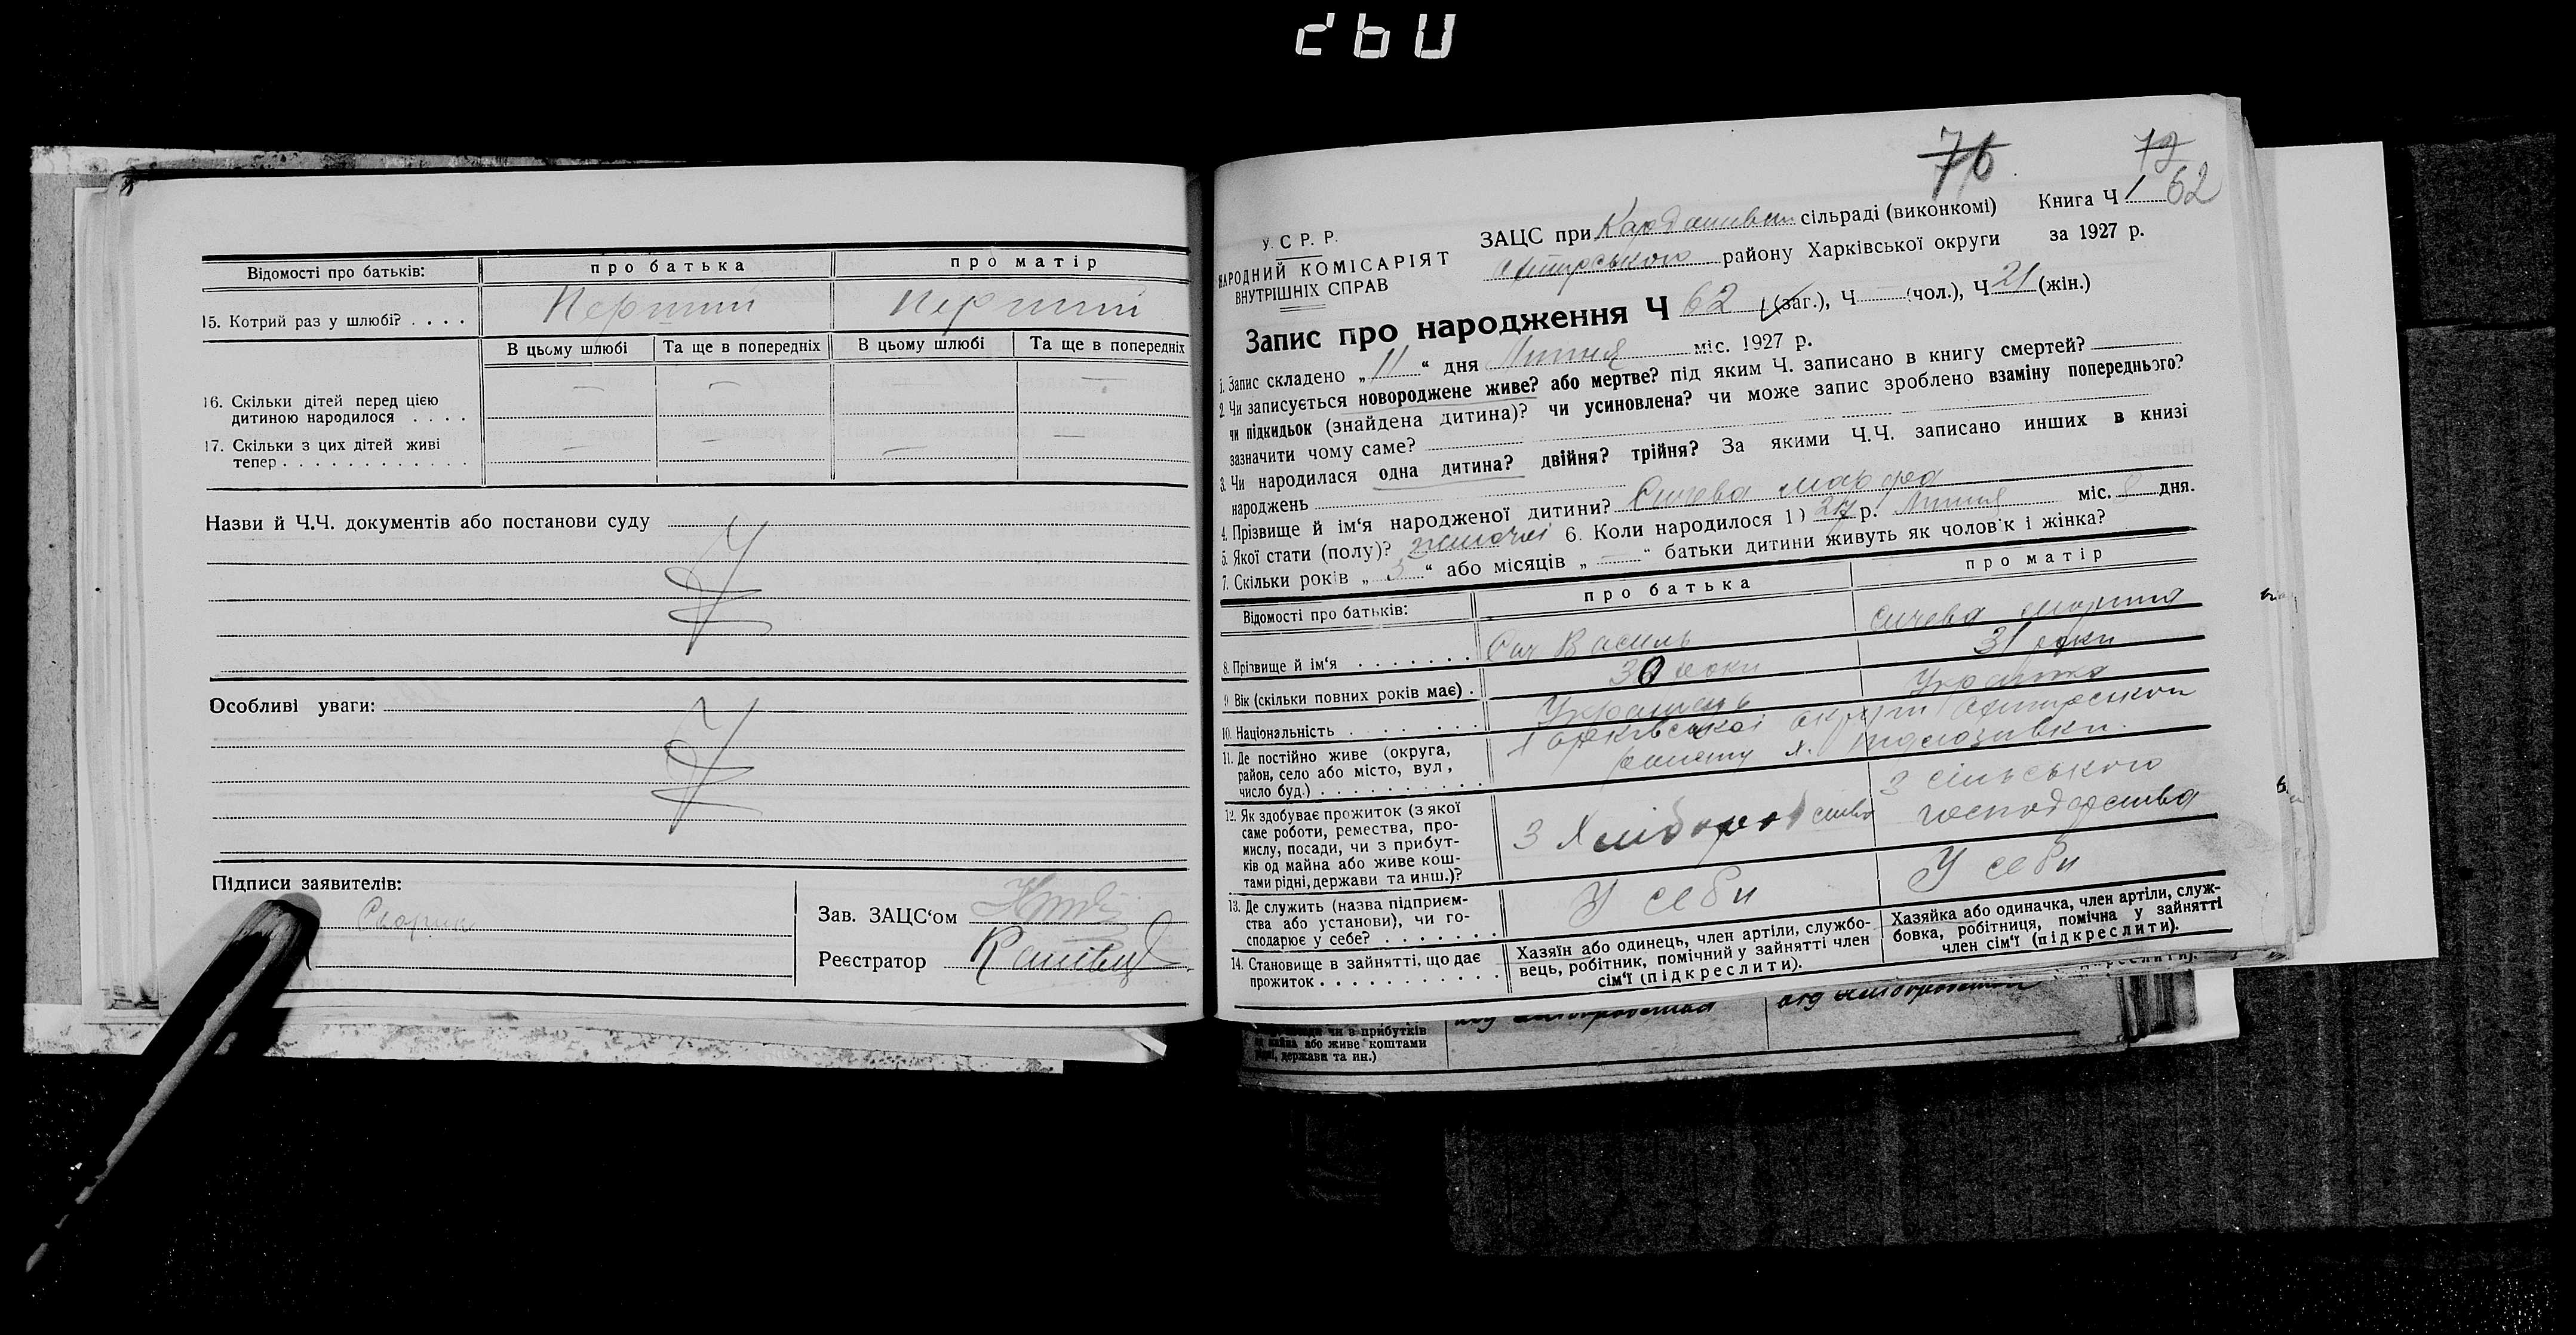 260
Відомості про батьків:
про батька
про матір
15. Котрий раз у шлюбі? . . . .
Перший
Перший
В цьому шлюбі
Та ще в попередніх
В цьому шлюбі
Та ще в попередніх
16. Скільки дітей перед цією
дитиною народилося . . . .
— — —
17. Скільки з цих дітей живі
тепер . . . . . . . . . . . .
— — — —
Назви й Ч.Ч. документів або постанови суду
Особливі уваги:
Підписи заявителів:
Зав. ЗАЦС‘ом
Реєстратор
76
72
62
У. С Р. Р.
НАРОДНИЙ КОМІСАРІЯТ
ВНУТРІШНІХ СПРАВ
ЗАЦС при сільраді (виконкомі)
району Харківської округи
Книга Ч 1
за 1927 р.
Запис про народження Ч 62 (заг.), Ч — (чол.), Ч 21 (жін.)
1. Запис складено „ 11 “ дня Липня міс. 1927 р.
2. Чи записується новороджене живе? або мертве? під яким Ч. записано в книгу смертей?
чи підкидьок (знайдена дитина)? чи усиновлена? чи може запис зроблено взаміну попереднього?
зазначити чому саме?
3. Чи народилася одна дитина? двійня? трійня? За якими Ч.Ч. записано инших в книзі
народжень
4. Прізвище й ім‘я народженої дитини? Сичева Марфа
5. Якої стати (полу)? жіночої 6. Коли народилося 1) 27 р. Липня міс. 8 дня.
7. Скільки років „ 3 “ або місяців „ — “ батьки дитини живуть як чоловік і жінка?
Відомості про батьків:
про батька
про матір
8. Прізвище й ім‘я . . . . . . .
Сич Василь
Сичева
9 Вік (скільки повних років має) .
30 роки
31 роки
10. Національність . . . . . . .
Українець
Українка
11. Де постійно живе (округа,
район, село або місто, вул,
число буд.) . . . . . . . . . .
Харківської округи
району х.
12. Як здобуває прожиток (з якої
саме роботи, ремества, про-
мислу, посади, чи з прибут-
ків од майна або живе кош-
тами рідні, держави та инш.)?
З Хліборобства
З сільського
господарства
13. Де служить (назва підприєм-
ства або установи), чи го-
сподарює у себе? . . . . . . .
У себи
У себи
14. Становище в зайнятті, що дає
прожиток . . . . . . . . . . .
Хазяїн або одинець, член артіли, службо-
вець, робітник, помічний у зайнятті член
сім‘ї (підкреслити).
Хазяйка або одиначка, член артіли, служ-
бовка, робітниця, помічна у зайнятті
член сім‘ї (підкреслити).
чи з прибутків
або живе коштами
держави та ин.)